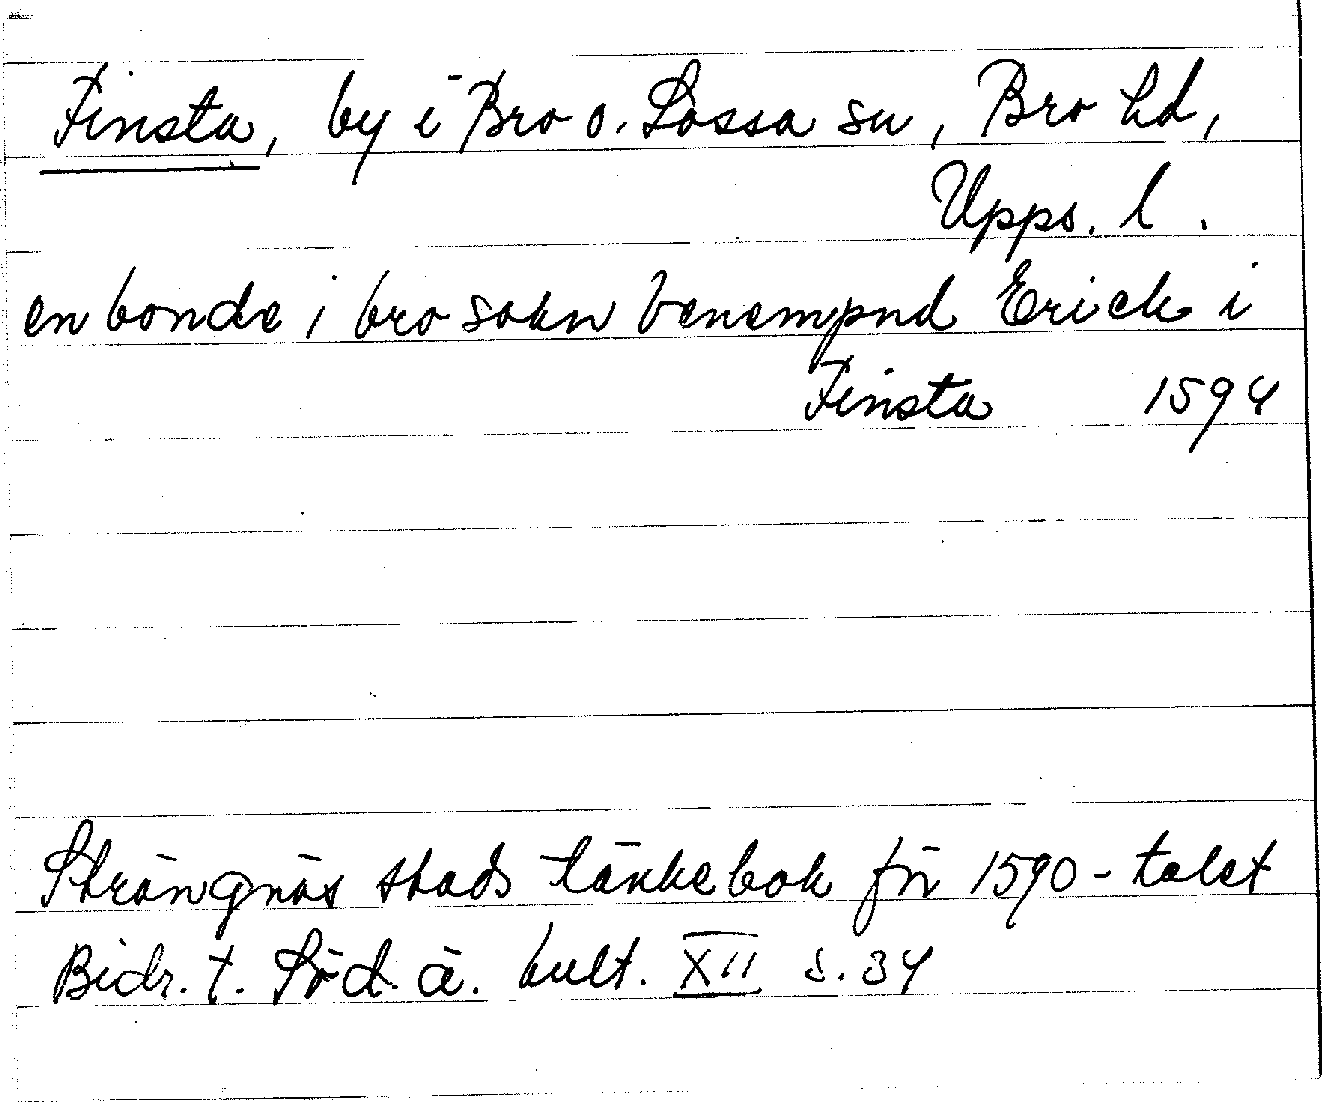 Finsta, by i Bro o. Lossa sn, Bro hd,
Upps. l.
en bonde i bro sokn benempnd Erick i
Finsta 1594
Strängnäs stads tänkebok för 1590-talet
Bidr. t. Söd. ä. kult. XII s. 34